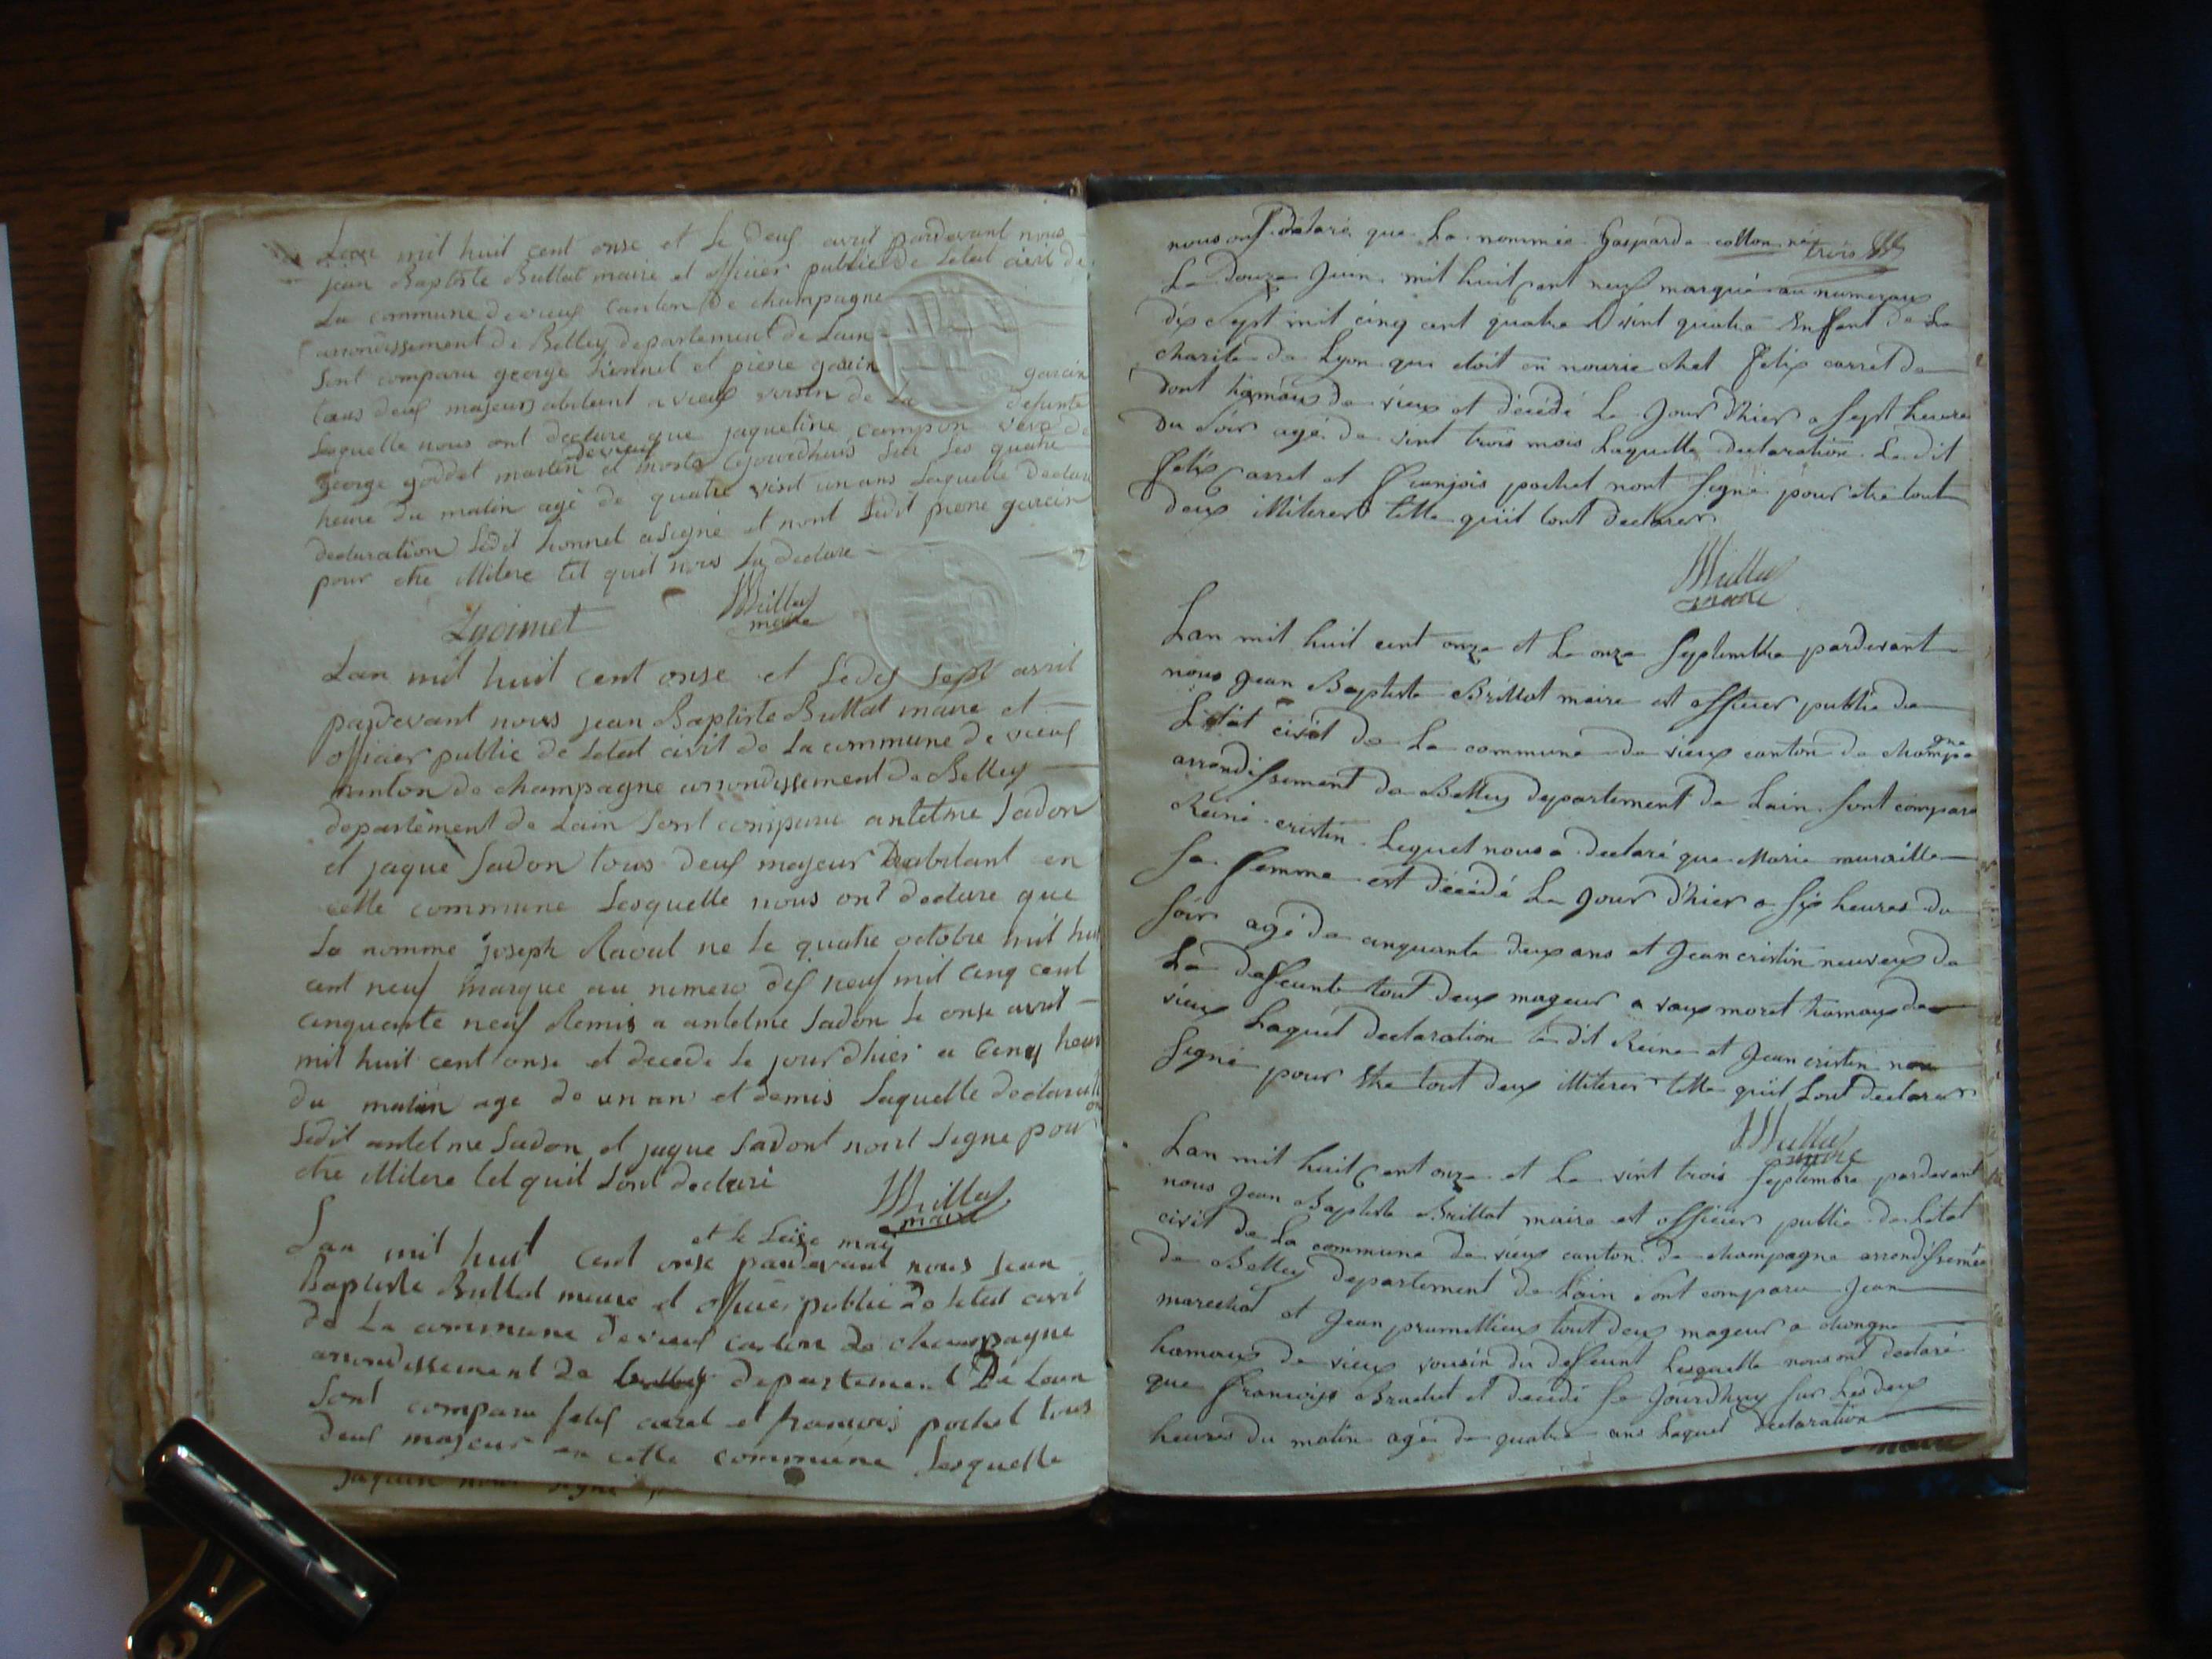 Lan mil huit cent onse et le deuf avril pardevant nous
jean Baptiste Brillat maire et officier public de letat civil de
La commune de vieuf canton de champagne
arrondissement de Belley departement de Lain
sont comparu george et piere garin garin
tous deuf majeurs abitant a vieuf voisin de La defunte
Lesquelle nous ont declare que jaqueline campin veve de
george goddet de vieuf et morte cejourdhuis sur les quatre
heure du matin agé de quatre vint un ans Laquelle declara
declaration ledit a signé et nont ledit piere garin
pour etre illitere tel quil nous La declare
Brillat
maire
Lan mil huit cent onse et le dis sept avril
pardevant nous jean Baptiste Brillat maire et
officier public de letat civil de La commune de vieuf
canton de champagne arrondissement de Belley
departement de Lain sont comparu antelme Sadon
et jaque Sadon tous deuf majeur habitant en
cette commune Lesquelle nous ont declare que
La nomme joseph Raoul ne le quatre octobre mil huit
cent neuf marque au numero dis neuf mil cinq cent
cinquante neuf Remis a antelme Sadon le onse avril
mil huit cent onse et decede le jour dhier a cinq heur
du matin age de un an et demis Laquelle declaration
Ledit antelme Sadon et jaque Sadont nont signe pour
etre illitere tel quil Lont declaré
Brillat
maire
et le seise may
Lan mil huit cent onse pardevant nous jean
Baptiste Brillat maire et officier public de letat civil
de La commune de vieuf canton de champagne
arrondissement de belley departement De Lain
sont comparu felis carret et francois pochet tous
deuf majeur en cette commune Lesquelle
nous ont délaré que La nommée Gasparde collon née
trois
Le douze Juin mil huit cent neuf marquée au numeraux
dix sept mil cinq cent quatre vint quatre Enffant de La
charite de Lyon qui etoit en nourie chet Felix carret de
dont hamaux de vieux et décédé Le Jour d'hier a sept heures
du soir agé de vint trois mois Laquelle declaration Le dit
Felix carret et François pochet nont signé pour etre tout
deux illiterer telle qu'il lont declarer
Brillat
maire
Lan mil huit cent onze et Le onze septembre pardevant
nous Jean Baptiste Brillat maire et officier public de
Létat civil de La commune de vieux canton de champagne
arrondissement de Belley departement de Lain sont comparu
Reiné cristin Lequel nous a declaré que Marie muraille
sa femme est décédé Le Jour d'hier a six heures du
soir agé de cinquante deux ans et Jean cristin neuveux de
La deffeunte tout deux mageur a vaux moret hamaux de
vieux Laquel declaration Le dit Reine et Jean cristin non
signé pour etre tout deux illiterer telle qu'il Lont declarer
Brillat
maire
Lan mil huit cent onze et Le vint trois septembre pardevant
nous Jean Baptiste Brillat maire et officier public de Létat
civil de La commune de vieux canton de champagne arrondissement
de Belley departement de Lain sont comparu Jean
marechal et Jean prumellieux tout deux mageur a chongne
hamaux de vieux vousin du defeunt Lesquelle nous ont declaré
que François Brachet et decedé se Jourdhuy sur Les deux
heures du matin agé de quatre ans Laquel declaration